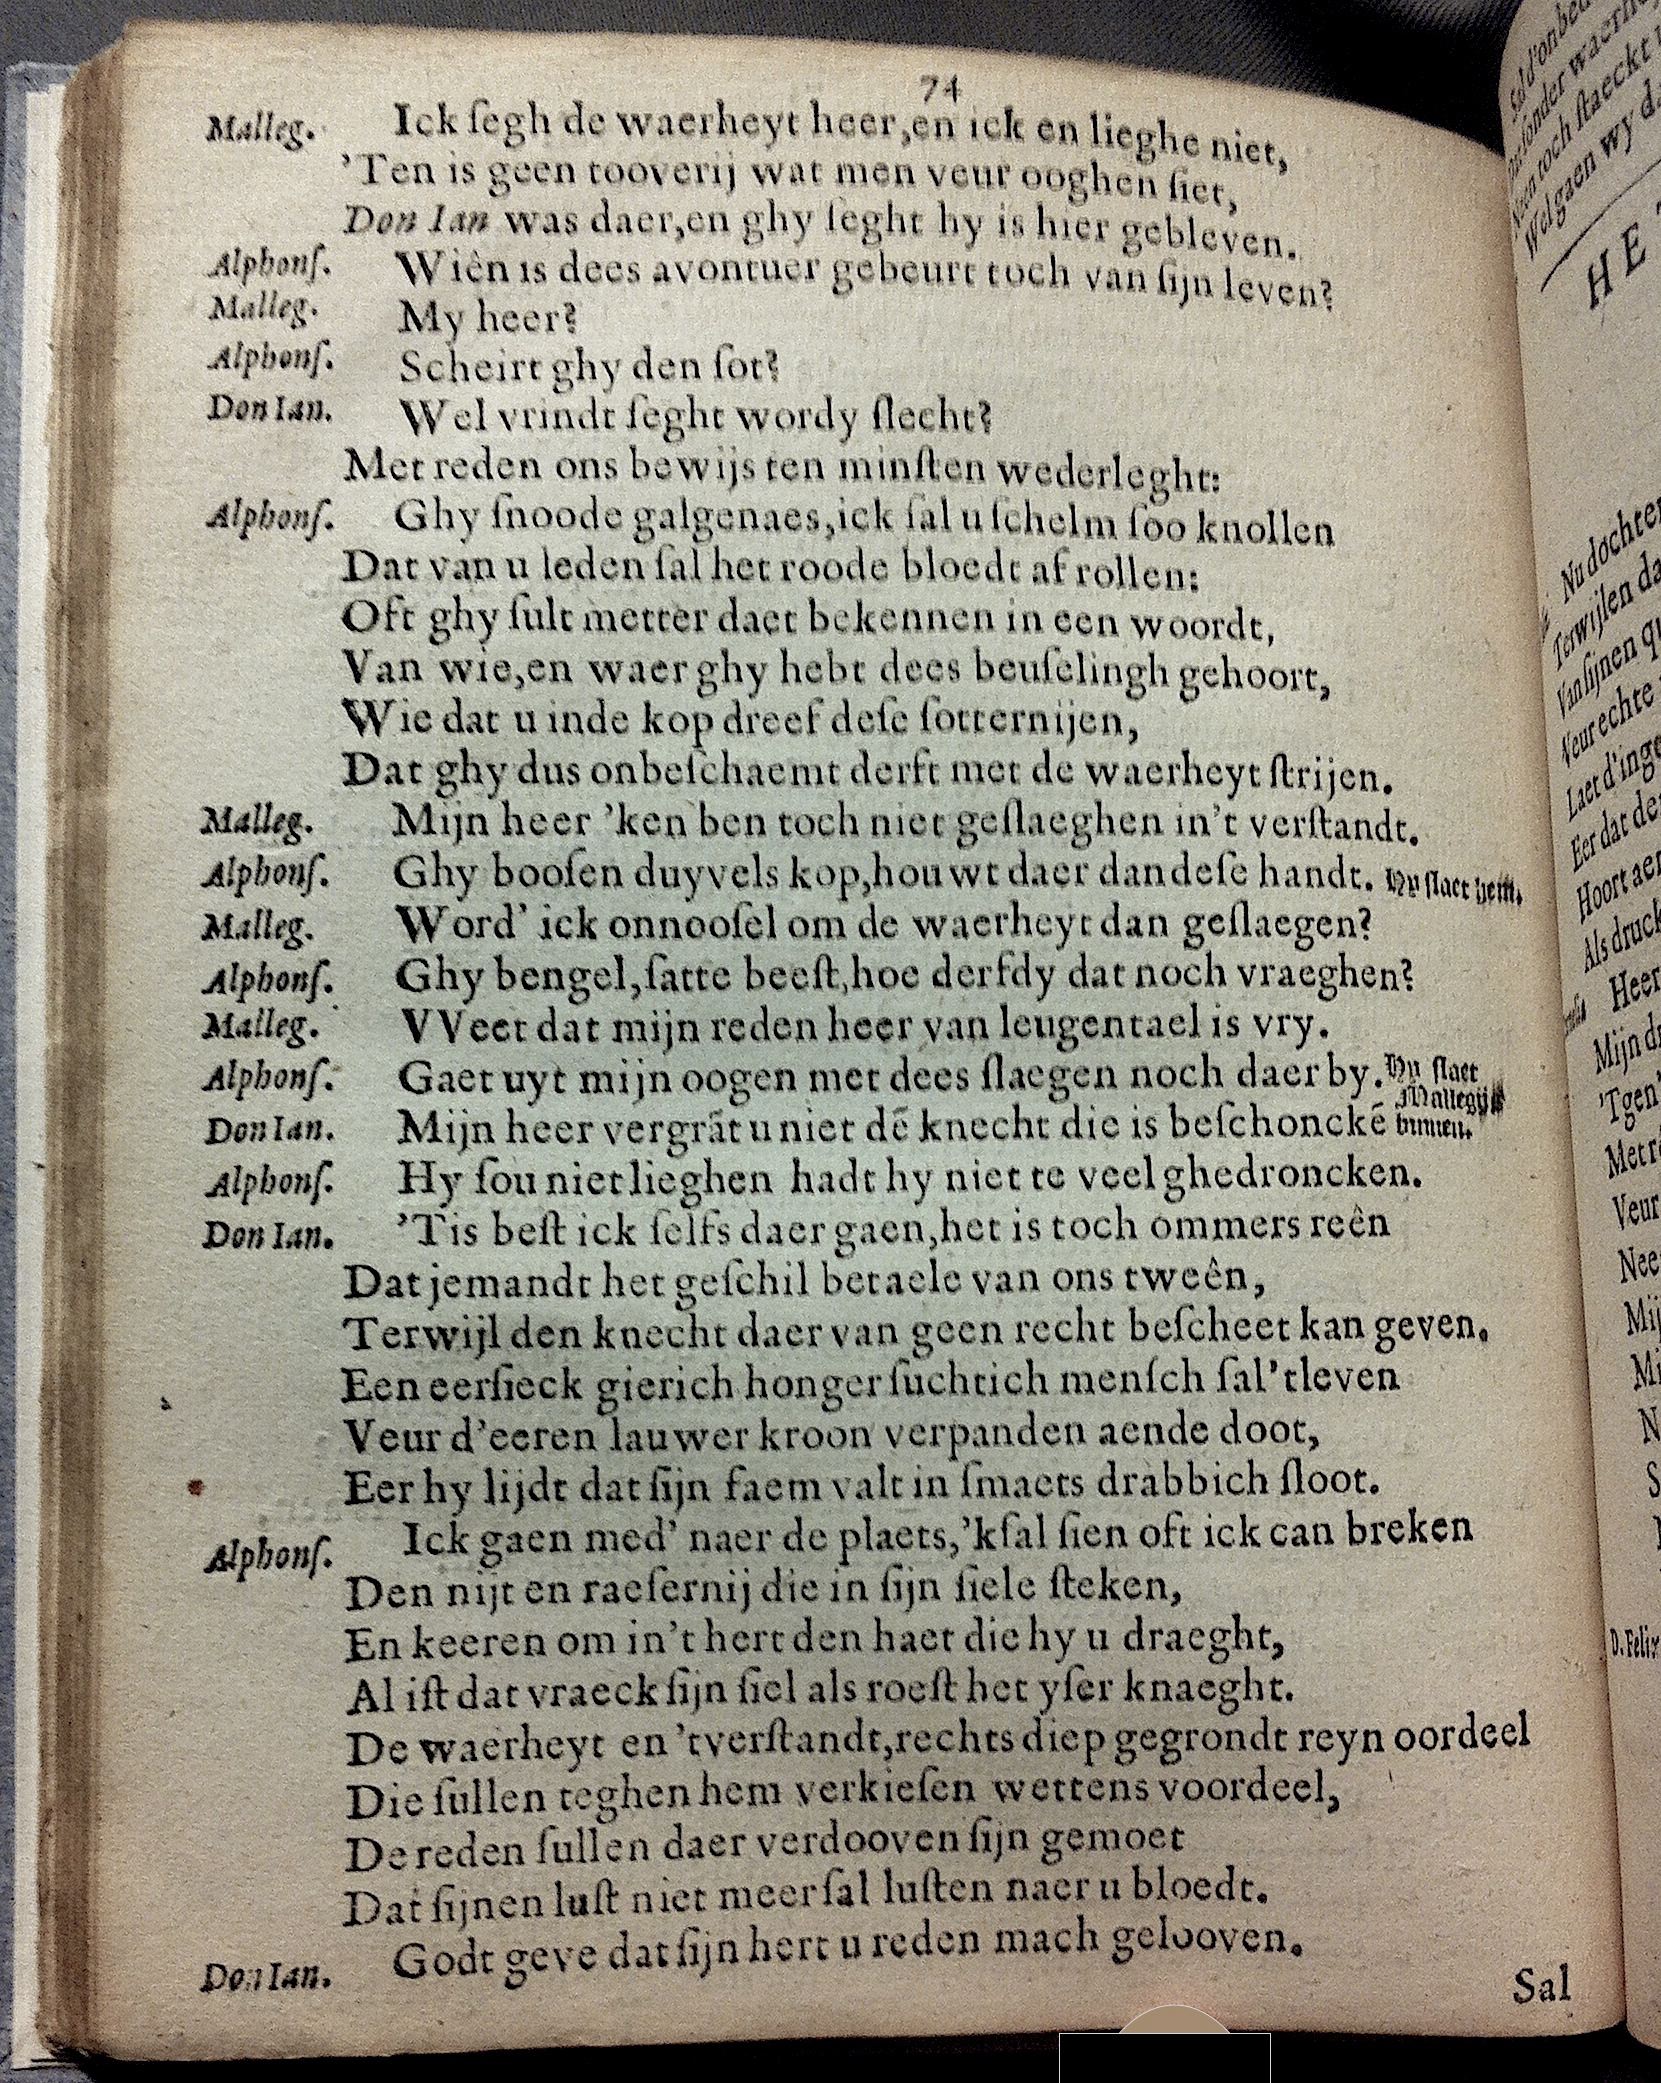 74
Malleg. Ick ſegh de waerheyt heer,en ick en lieghe niet,
’Ten is geen tooverij wat men veur ooghen ſiet,
Don Ian was daer,en ghy ſeght hy is hier gebleven.
Alphonſ. Wiên is dees avontuer gebeurt toch van ſijn leven?
Malleg. My heer?
Alphonſ. Scheirt ghy den ſot?
Don Ian. Wel vrindt ſeght wordy ſlecht?
Met reden ons bewijs ten minſten wederleght:
Alphonſ. Ghy ſnoode galgenaes,ick ſal u ſchelm ſoo knollen
Dat van u leden ſal het roode bloedt af rollen:
Oft ghy ſult metter daet bekennen in een woordt,
Van wie,en waer ghy hebt dees beuſelingh gehoort,
Wie dat u inde kop dreef deſe ſotternijen,
Dat ghy dus onbeſchaemt derft met de waerheyt ſtrijen.
Malleg. Mijn heer ’ken ben toch niet geſlaeghen in’t verſtandt.
Alphonſ. Ghy booſen duyvels kop,houwt daer dan deſe handt. Hy ſlaet hem.
Malleg. Word’ ick onnooſel om de waerheyt dan geſlaegen?
Alphonſ. Ghy bengel,ſatte beeſt,hoe derfdy dat noch vraeghen?
Malleg. VVeet dat mijn reden heer van leugentael is vry.
Alphonſ. Gaet uyt mijn oogen met dees ſlaegen noch daer by. Hy ſlaet
Mallegijs
Don Ian. Mijn heer vergrāt u niet dē knecht die is beſchonckē binnen.
Alphonſ. Hy ſou niet lieghen hadt hy niet te veel ghedroncken.
Don Ian. ’Tis beſt ick ſelfs daer gaen,het is toch ommers reên
Dat jemandt het geſchil betaele van ons tweên,
Terwijl den knecht daer van geen recht beſcheet kan geven.
Een eerſieck gierich honger ſuchtich menſch ſal’t leven
Veur d’eeren lauwer kroon verpanden aende doot,
Eer hy lijdt dat ſijn faem valt in ſmaets drabbich ſloot.
Alphonſ. Ick gaen med’ naer de plaets,’k ſal ſien oft ick can breken
Den nijt en raeſernij die in ſijn ſiele ſteken,
En keeren om in’t hert den haet die hy u draeght,
Al iſt dat vraeck ſijn ſiel als roeſt het yſer knaeght.
De waerheyt en ’tverſtandt,rechts diep gegrondt reyn oordeel
Die ſullen teghen hem verkieſen wettens voordeel,
De reden ſullen daer verdooven ſijn gemoet
Dat ſijnen luſt niet meer ſal luſten naer u bloedt.
Don Ian. Godt geve dat ſijn hert u reden mach gelooven.
Sal
HE
Nu dochte
Terwijlen da
Van ſijnen
Veur echte
Laet d’inge
Eer dat de
Hoort aer
Als druck
Heer
Mijn
’Tgen
Met
Veur
Nee
D. Felix